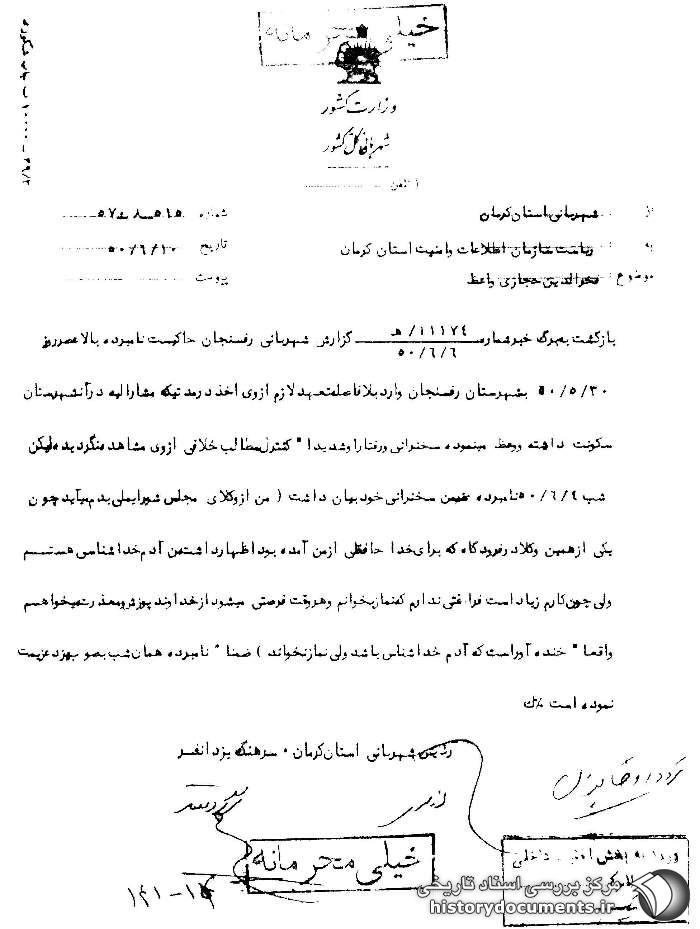 خیلی محرمانه
وزارت کشور
شهربانی کل کشور
تلفن
از شهربانی استان کرمان
شماره ۵۱۵-۸-۵۷
به ریاست سازمان اطلاعات و امنیت استان کرمان
تاریخ ۵۰/۶/۲۰
موضوع فخرالدین حجازی واعظ
پیوست
بازگشت به برگ خبر شماره ۱۱۱۷۴/هـ ۵۰/۶/۶ گزارش شهربانی رفسنجان حاکیست نامبرده بالا عصر روز
۵۰/۵/۳۰ بشهرستان رفسنجان وارد بلافاصله تعهد لازم از وی اخذ در مدتیکه مشارالیه در آنشهرستان
سکونت داشته ووعظ مینموده سخنرانی ورفتار او شدیدا" کنترل مطالب خلافی ازوی مشاهده نگردیده لیکن
شب ۵۰/۶/۴ نامبرده ضمن سخنرانی خود بیان داشت ( من از وکلای مجلس شورایملی بدم میآید چون
یکی از همین وکلا در فرودگاه که برای خدا حافظی از من آمده بود اظهار داشت من آدم خدا شناسی هستم
ولی چون کارم زیاد است فراغتی ندارم که نماز بخوانم و هر وقت فرصتی میشود از خداوند پوزش و معذرت میخواهم
واقعا" خنده آور است که آدم خدا شناس باشد ولی نماز نخواند ) ضمنا" نامبرده همان شب بصوب یزد عزیمت
نموده است
رئیس شهربانی استان کرمان . سرهنگ یزدانفر
خیلی محرمانه
ورود به بخش امنیت داخلی
۱۴۱-۱۴
مرکز بررسی اسناد تاریخی
historydocuments.ir